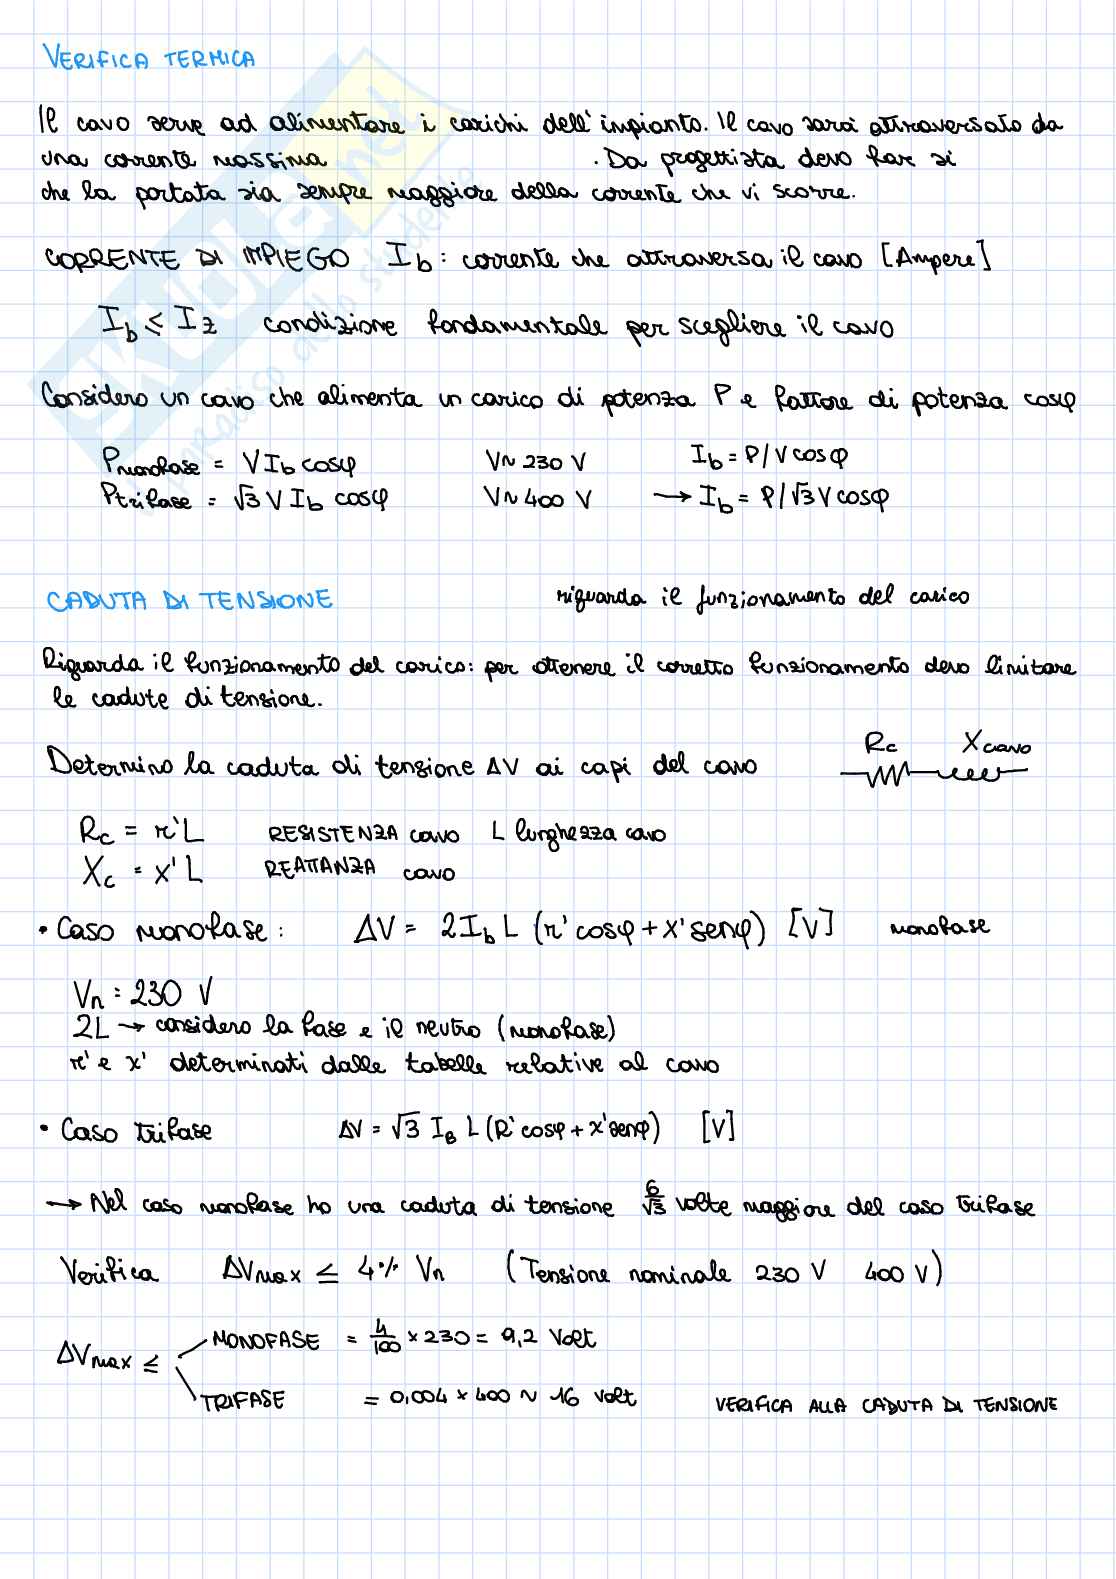 VERIFICA TERMICA
Il cavo serve ad alimentare i carichi dell'impianto. Il cavo sarà attraversato da
una corrente massima . Da progettista devo far sì
che la portata sia sempre maggiore della corrente che vi scorre.
CORRENTE DI IMPIEGO Ib : corrente che attraversa il cavo [Ampere]
Ib ≤ Iz condizione fondamentale per scegliere il cavo
Considero un cavo che alimenta un carico di potenza P e fattore di potenza cosφ
Pmonofase = V Ib cosφ V~ 230 V Ib = P/V cosφ
Ptrifase = √3 V Ib cosφ V~ 400 V → Ib = P/√3 V cosφ
CADUTA DI TENSIONE riguarda il funzionamento del carico
Riguarda il funzionamento del carico: per ottenere il corretto funzionamento devo limitare
le cadute di tensione.
Rc Xcavo
Determino la caduta di tensione ΔV ai capi del cavo
Rc = r'L RESISTENZA cavo L lunghezza cavo
Xc = x'L REATTANZA cavo
• Caso monofase : ΔV = 2 Ib L (r' cosφ + x' senφ) [V] monofase
Vn = 230 V
2L → considero la fase e il neutro (monofase)
r' e x' determinati dalle tabelle relative al cavo
• Caso trifase ΔV = √3 IB L (R' cosφ + x' senφ) [V]
→ Nel caso monofase ho una caduta di tensione 6/√3 volte maggiore del caso trifase
Verifica ΔVmax ≤ 4% Vn (Tensione nominale 230 V 400 V)
ΔVmax ≤
MONOFASE = 4/100 × 230 = 9,2 Volt
TRIFASE = 0,004 × 400 ~ 16 volt VERIFICA ALLA CADUTA DI TENSIONE
SKUOLA.net